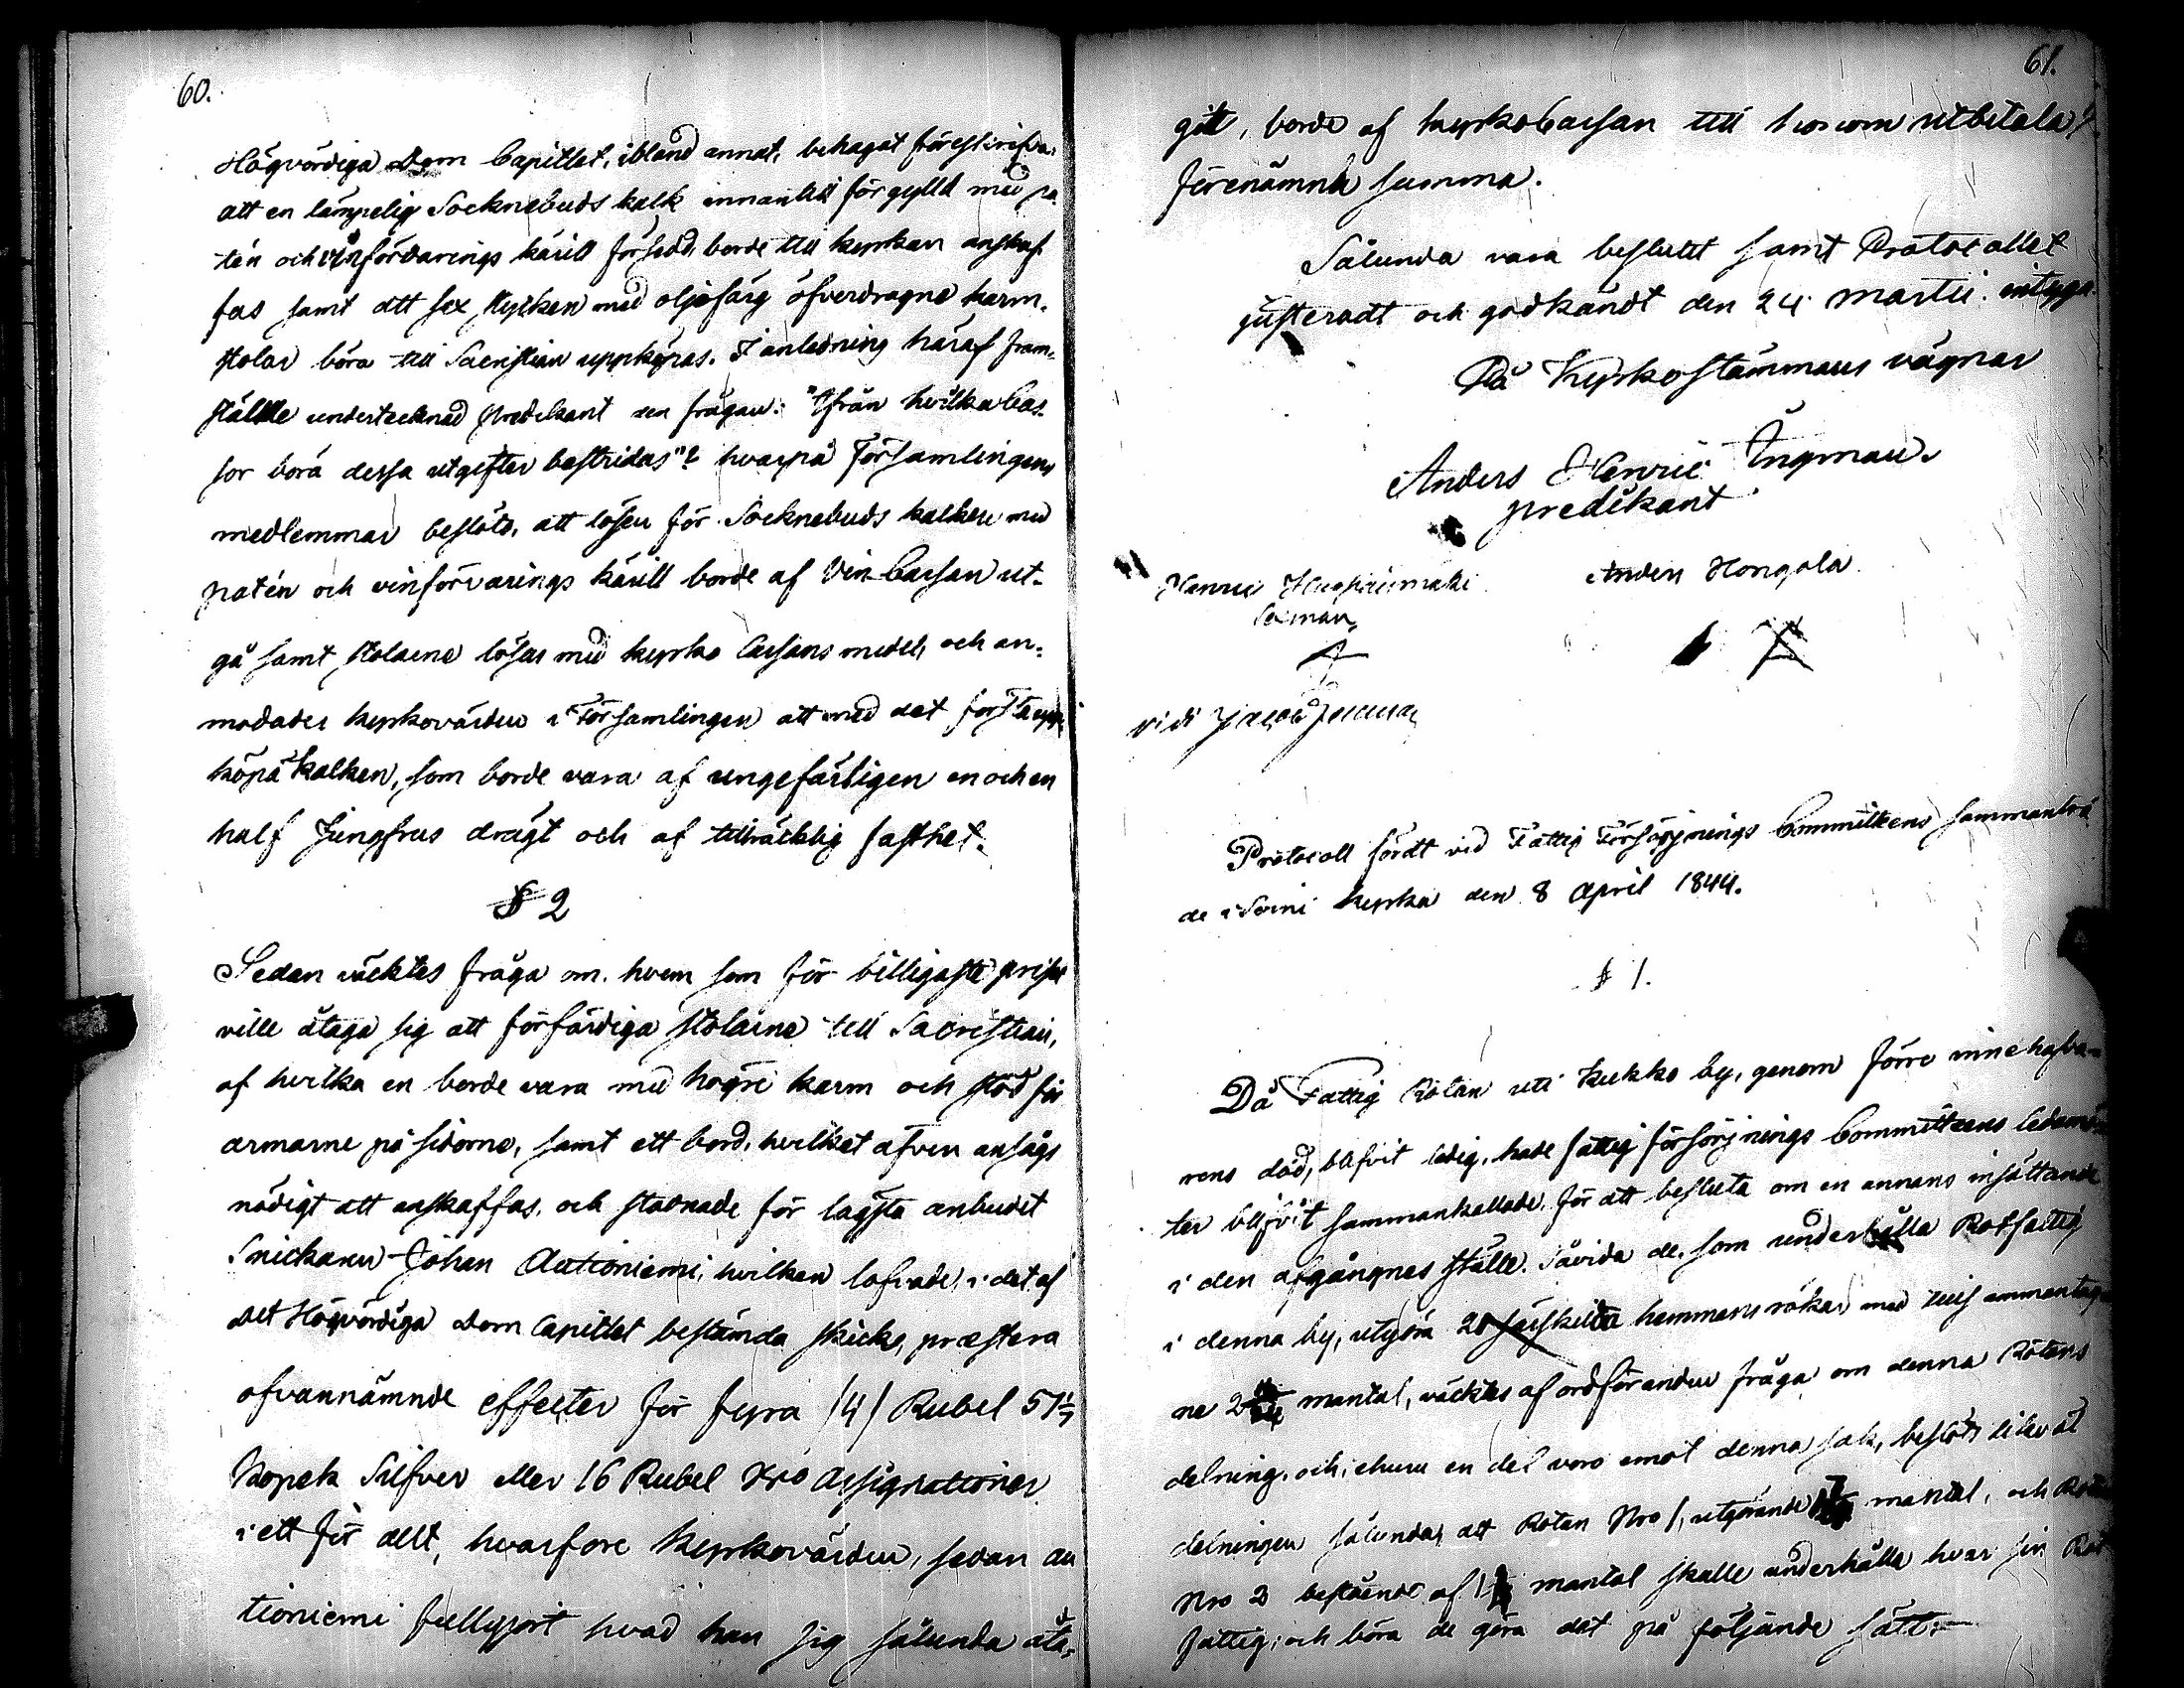 60.
Högvördiga Dom Capitlet, ibland annat, behagat föreskrifva,
att en lämpelig Socknebuds kalk innantill förgylld med pa-
tén och vinförvarings kärill försedd, borde till kyrkan anskaf-
fas samt att sex stycken med oljofärg öfverdragne karm-
stolar böra till Sacristian uppköpas. I anledning häraf fram-
stälde undertecknad predikant den frågan: "Ifrån hvilka Cas-
sor böra dessa utgifter bestridas"? hvarpå Församlingens
medlemmar beslöto, att lösen för Socknebuds kalken med
patén och vinförvarings kärill borde af Vin Cassan ut-
gå samt stolarne lösas med kyrko Cassans medel, och an-
modades kyrkovärden i Församlingen att med det första upp-
köpa kalken, som borde vara af ungefärligen en och en
half Jungfrus drägt och af tillräcklig fasthet.
§ 2
Sedan väcktes fråga om, hvem som för billigaste priset
ville åtaga sig att förfärdiga stolarne till Sacristian,
af hvilka en borde vara med högre karm och stöd för
armarne på sidorne, samt ett bord, hvilket äfven ansågs
nödigt att anskaffas, och stadnade för lägsta anbudet
Snickaren Johan Autioniemi, hvilken lofvade, i det af
det Högvördiga Dom Capitlet bestämda skick, præstera
ofvannämnde effecter för fyra /4/ Rubel 57 1/7
Kopek Silfver eller 16 Rubel Rco Assignationer
i ett för allt, hvarfore kyrkovärden, sedan Au
tioniemi fullgjort hvad han sig sålunda åta-
61.
git, borde af kyrkocassan till honom utbetala
förenämnda summa.
Sålunda vara beslutit samt Protocollet
justeradt och godkändt den 24 Martii. intyga
På Kyrkostämmans vägnar
Anders Henric Ingman.
predikant
Henric
Anders Hongola
vidi Jacob
Protocoll fördt vid Fattig Försörjnings Committéens sammanträ
de i Soini kyrka den 8 April 1844.
§ 1.
Då Fattig Rotan uti Kukko by, genom förre innehafva-
rens död, blifvit ledig, hade fattig försörjnings Committéens ledamö-
ter blifvit sammankallade, för att besluta om en annans insättande
i den afgångnes ställe. Såvida de, som underhålla Rotfattig
i denna by, utgöra 20 särskilda hemmans rökar med tillsammantag
ne 2 mantal, väcktes af ordföranden fråga om denna Rotens
delning, och, ehuru en del voro emot denna sak, beslöts likväl
delningen sålunda, att Rotan Nro 1, utgörande mantal, och Rotan
Nro 2 bestående af 1 mantal skulle underhålla hvar sin Rot
fattig, och böra de göra det på följande sätt: